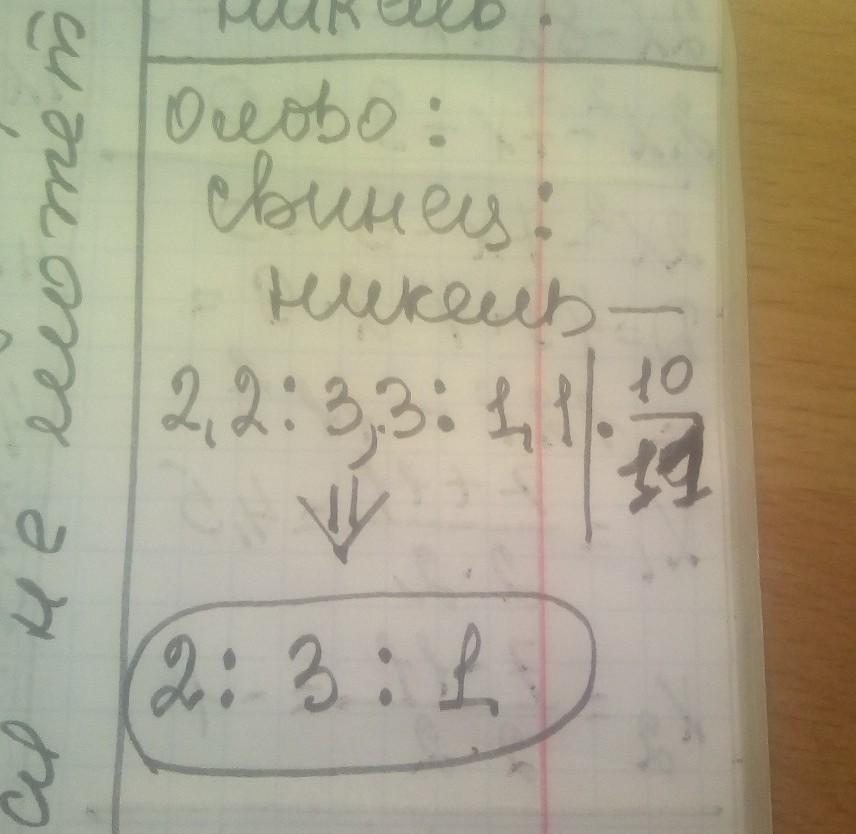 никель.
олово:
свинец:
никель —
2,2 : 3,3 : 1,1 | · 10/11
⇓
2 : 3 : 1
не